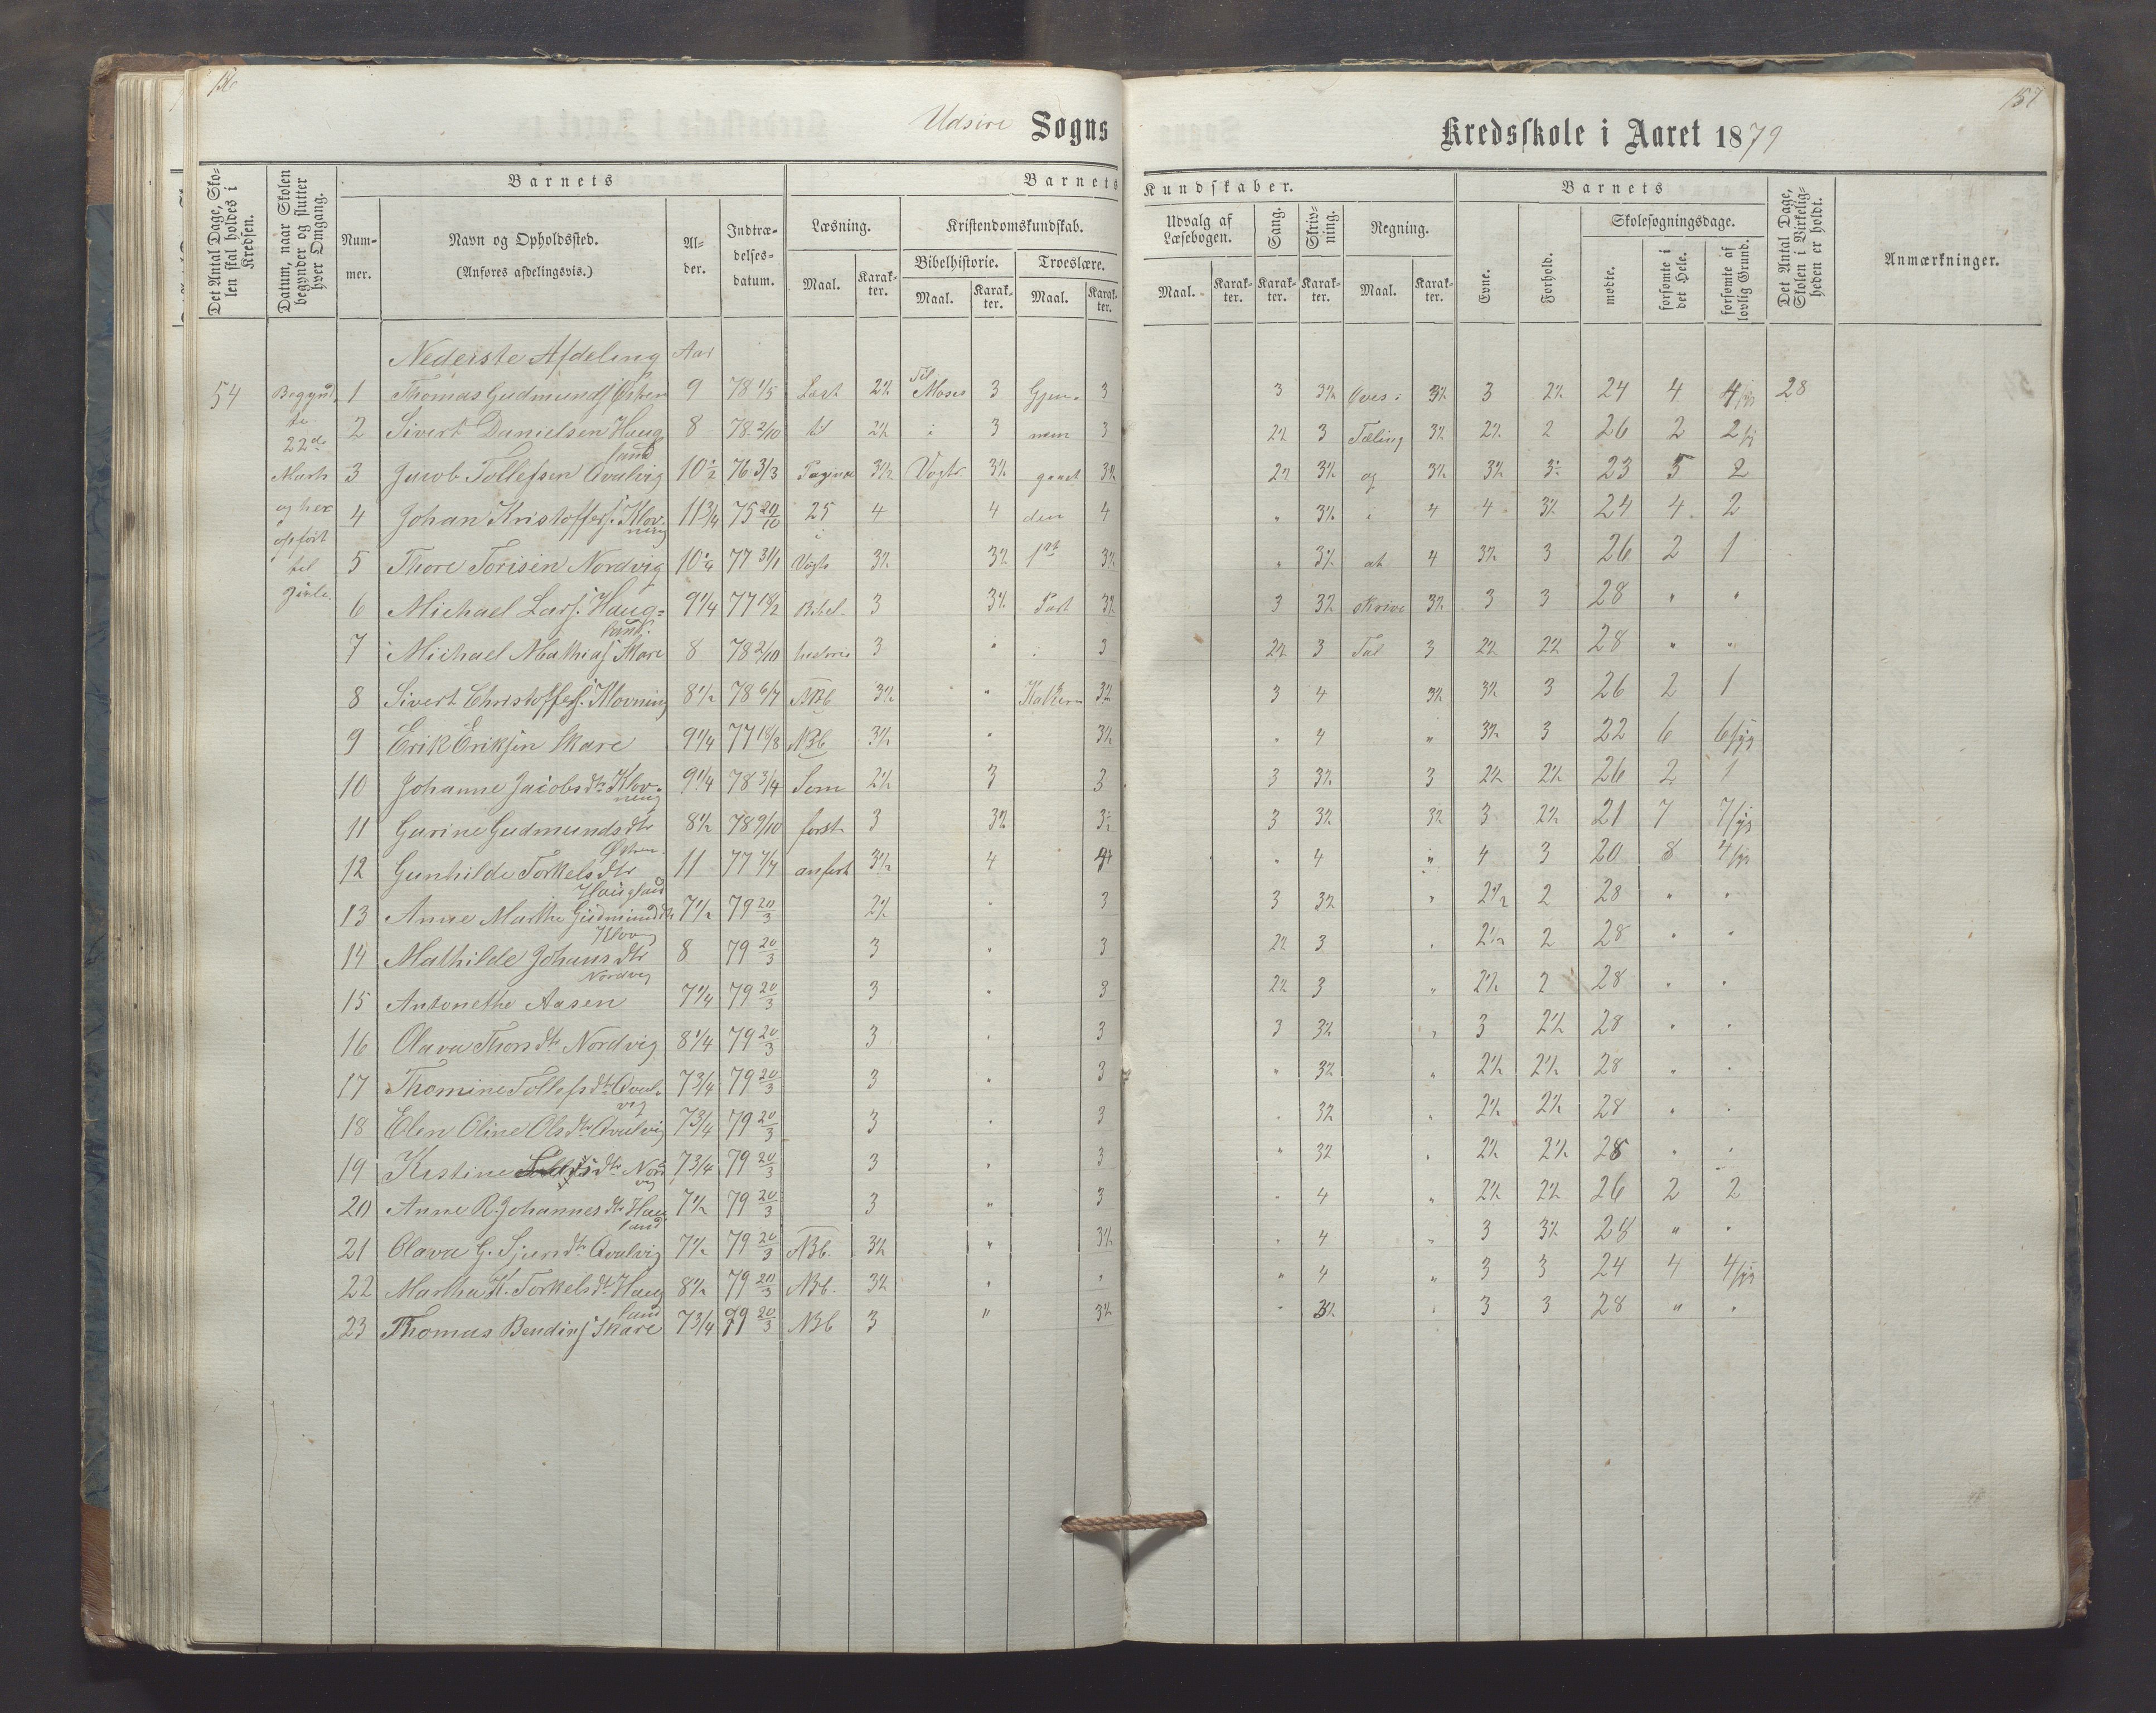 156
157
Udsire Sogns
Kredsskole i Aaret 1879
Det Antal Dage, Skolen skal holdes i Kredsen.
Datum, naar Skolen begynder og slutter hver Omgang.
Barnets
Nummer.
Navn og Opholdssted.
(Anføres afdelingsvis.)
Alder.
Indtrædelsesdatum.
Barnets Kundskaber.
Læsning.
Maal.
Karakter.
Kristendomskundskab.
Bibelhistorie.
Maal.
Karakter.
Troeslære.
Maal.
Karakter.
Udvalg af Læsebogen.
Maal.
Karakter.
Sang.
Karakter.
Skrivning.
Karakter.
Regning.
Maal.
Karakter.
Barnets
Evne.
Forhold.
Skolesøgningsdage.
mødte.
forsømte i det Hele.
forsømte af lovlig Grund.
Det Antal Dage, Skolen i Virkeligheden er holdt.
Anmærkninger.
Nederste Afdeling Aar
54 Begynd 1 Thomas Gudmunds. Østhen 9 78 1/5 Læst 2½ Til Moses 3 Gjen- 3 3 3½ Øves i 3½ 3 2½ 24 4 4 28
te 22de 2 Sivert Danielsen Haugland 8 78 2/10 til 2½ i 3 nem 3 2½ 3 Tæling 3½ 2½ 2 26 2 2
Marts 3 Jacob Tollefsen Qvalvig 10½ 76 3/3 Pagina 3½ Vogts 3½ gaaet 3½ 2½ 3½ og 3½ 3½ 3½ 23 5 2
og her 4 Johan Kristoffers. Klovning 11¾ 75 29/10 25 4 4 den 4 " 3½ i 4 4 3½ 24 4 2
opført til 5 Thore Torisen Nordvig 10¼ 77 31/1 i Vogts 3½ 3½ 1ste 3½ " 3½ at 4 3½ 3 26 2 1
6 Michael Lars. Haugland 9¼ 77 3 3½ Part 3½ 3 3½ skrive 3½ 3 3 28 " "
7 Michael Mathias. Skare 8 78 2/10 3 " i 3 2½ 3 Tal 3 2½ 2½ 28 " "
8 Sivert Christoffers. Klovning 8½ 78 6/7 NBb 3½ " 3½ 3 4 3½ 3½ 3 26 2 1
9 Erik Eriksen Skare 9¼ 77 NBb 3½ " 3½ " 4 " 3½ 3 22 6 6
10 Johanne Jacobsdtr Klovning 9¼ 78 3/4 Som 2½ 3 3 3 3½ 3 2½ 2½ 26 2 1
11 Gurine Gudmundsdtr Østhen 8½ 78 9/10 først 3 3½ 3½ 3 3½ 3½ 3 2½ 21 7 7
12 Gunhilde Torkelsdtr Haugland 11 77 anført 3½ 4 4 " 4 " 4 3 20 8 4
13 Anne Marthe Gudmundsdtr Klovng 7½ 79 20/3 2½ " 3 3 3½ " 2½ 2 28 " "
14 Mathilde Johansdtr Nordvig 8 79 20/3 3 " 3 2½ 3 " 2½ 2 28 " "
15 Antonethe Aasen 7¼ 79 20/3 3 " 3 2½ 3 " 2½ 2 28 " "
16 Olava Thorsdtr Nordvig 8¼ 79 20/3 3 " 3 3 3½ " 3 2½ 28 " "
17 Thomine Tollefsdtr Qvalvig 7¾ 79 20/3 3 " 3 " 3½ " 2½ 2½ 28 " "
18 Elen Oline Olsdtr Qvalvig 7¾ 79 20/3 3 " 3 " 3½ " 2½ 2½ 28 " "
19 Kistine dtr Nordvig 7¾ 79 20/3 3 " 3 " 3½ " 2½ 3½ 28 " "
20 Anne R. Johannesdtr Haugland 7½ 79 20/3 3 " 3 " 4 " 2½ 2½ 26 2 2
21 Olava G. Sjursdtr Qvalvig 7½ 79 20/3 NBb. 3½ " 3½ " 4 " 3 3½ 28 " "
22 Martha K. Torkelsdtr Haugland 8½ 79 20/3 NBb. 3½ " " " 4 " 3 3 24 4 4
23 Thomas Bendins. Skare 7¾ 79 20/3 NBb 3 " 3½ " 3½ " 3 3 28 " "